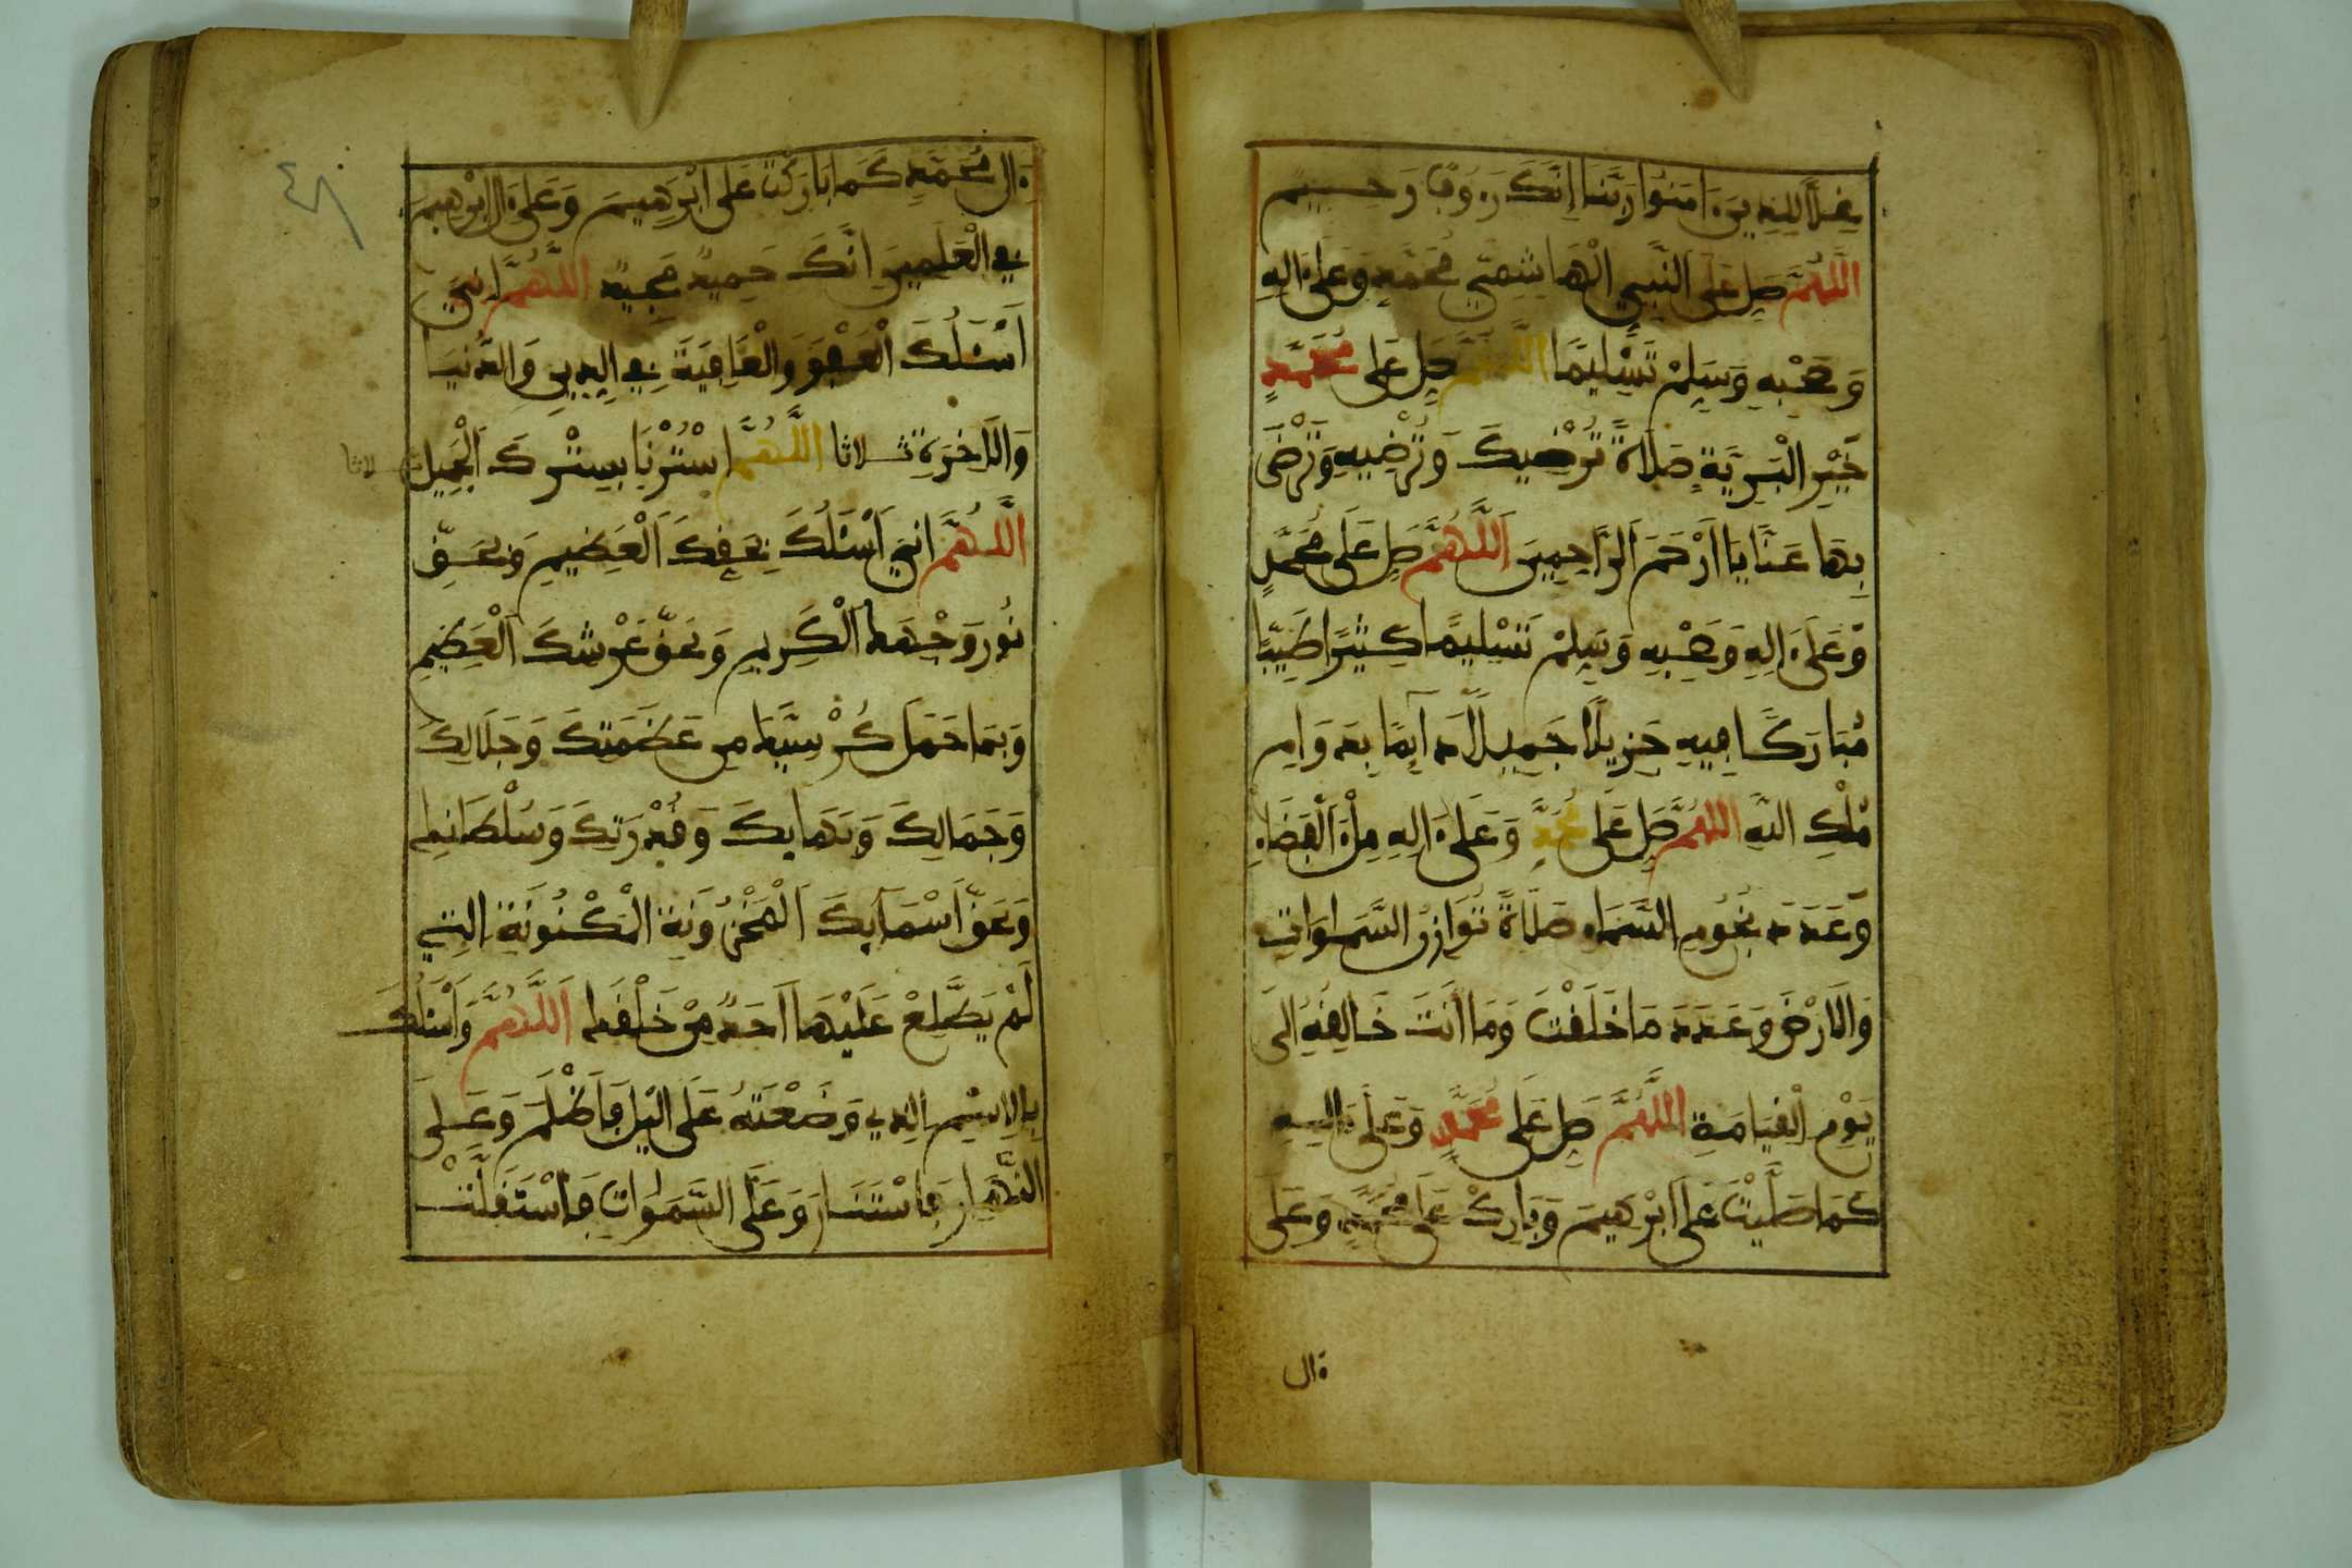 غِلًّا لِلذِينَ ءَامَنُوا رَبَّنَا إِنَّكَ رَءُوفٌ رَحِيمٌ
اللَّهُمَّ صَلِّ عَلَى النَّبِيِّ الْهَاشِمِيِّ مُحَمَّدٍ وَعَلَى ءَالِهِ
وَصَحْبِهِ وَسَلِّمْ تَسْلِيمًا اللَّهُمَّ صَلِّ عَلَى مُحَمَّدٍ
خَيْرِ الْبَرِيَّةِ صَلَاةً تُرْضِيكَ وَتُرْضِيهِ وَتَرْضَى
بِهَا عَنَّا يَا أَرْحَمَ الرَّاحِمِينَ اللَّهُمَّ صَلِّ عَلَى مُحَمَّدٍ
وَّعَلَى ءَالِهِ وَصَحْبِهِ وَسَلِّمْ تَسْلِيمًا كَثِيرًا طَيِّبًا
مُّبَارَكًا فِيهِ جَزِيلًا جَمِيلًا دَآئِمًا بِدَوَامِ
مُلْكِ اللَّهِ اللَّهُمَّ صَلِّ عَلَى مُحَمَّدٍ وَعَلَى ءَالِهِ مِلْءَ الْفَضَاءِ
وَّعَدَدَ نُجُومِ السَّمَاءِ صَلَاةً تُوَازِنُ السَّمَاوَاتِ
وَالَارْضَ وَعَدَدَ مَا خَلَقْتَ وَمَا أَنتَ خَالِقُهُ إِلَى
يَوْمِ الْقِيَامَةِ اللَّهُمَّ صَلِّ عَلَى مُحَمَّدٍ وَعَلَى ءَالِهِ
كَمَا صَلَّيْتَ عَلَى ابْرَهِيمَ وَبَارِكْ عَلَى مُحَمَّدٍ وَعَلَى
ءال
ءَالِ مُحَمَّدٍ كَمَا بَارَكْتَ عَلَى ابْرَهِيمَ وَعَلَى ءَالِ ابْرَهِيمَ
فِي الْعَلَمِينَ انَّكَ حَمِيدٌ مَجِيدٌ اللَّهُمَّ انِّي
أَسْئَلُكَ الْعَفْوَ وَالْعَافِيَةَ فِي الدِّينِ وَالدُّنْيَا
وَالَاخِرَةِ ثلاثا اللَّهُمَّ اسْتُرْنَا بِسِتْرِكَ الْجَمِيلِ ثلاثا
اللَّهُمَّ انِّي أَسْئَلُكَ بِحَقِّكَ الْعَظِيمِ وَبِحَقِّ
نُورِ وَجْهِكَ الْكَرِيمِ وَبِحَقِّ عَرْشِكَ الْعَظِيمِ
وَبِمَا حَمَلَ كُرْسِيُّكَ مِن عَظَمَتِكَ وَجَلَالِكَ
وَجَمَالِكَ وَبَهَائِكَ وَقُدْرَتِكَ وَسُلْطَانِكَ
وَبِحَقِّ أَسْمَآئِكَ الْمَخْزُونَةِ الْمَكْنُونَةِ الَّتِي
لَمْ يَطَّلِعْ عَلَيْهَا أَحَدٌ مِّنْ خَلْقِكَ اللَّهُمَّ وَأَسْئَلُكَ
بِالِاسْمِ الذِي وَضَعْتَهُ عَلَى اليْلِ فَأَظْلَمَ وَعَلَى
النَّهَارِ فَاسْتَنَارَ وَعَلَى السَّمَوَاتِ فَاسْتَقَلَّتْ